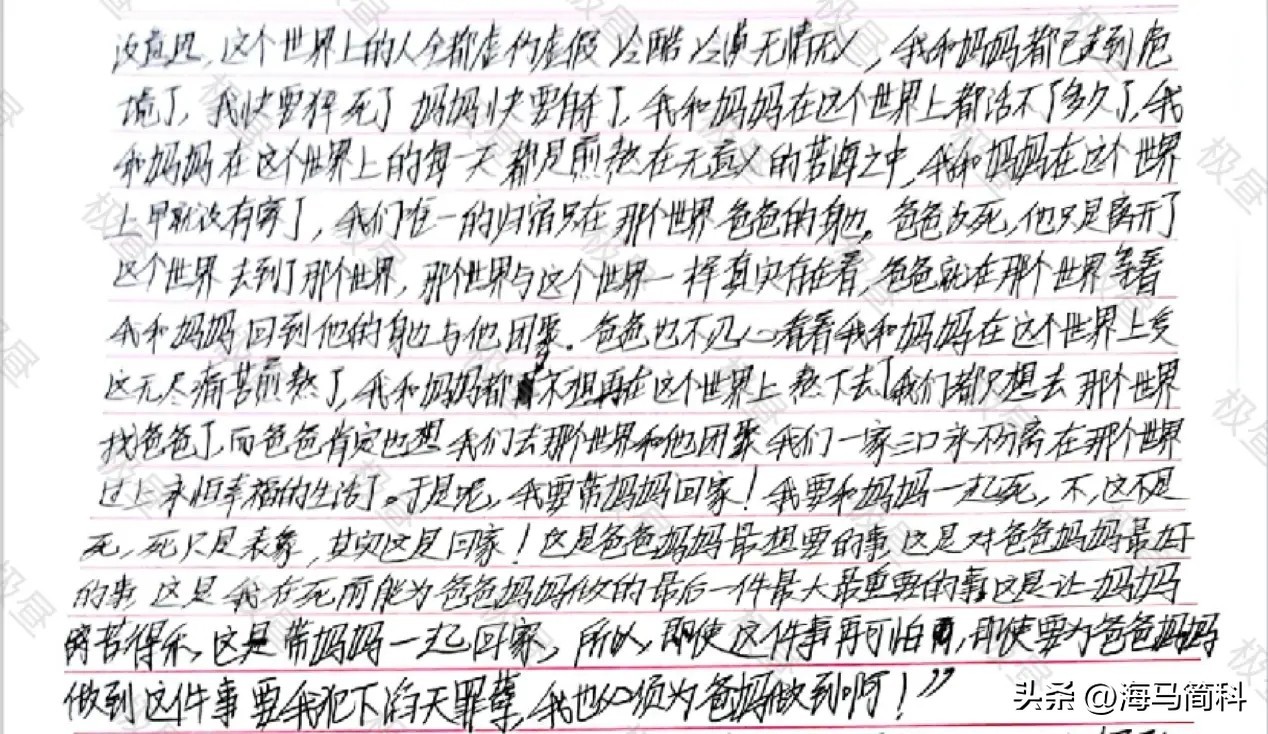 没意思，这个世界上的人全都虚伪虚假 冷酷 冷漠 无情无义，我和妈妈都已走到危
境了，我快要猝死了 妈妈快要自杀了，我和妈妈在这个世界上都活不了多久了，我
和妈妈在这个世界上的每一天 都是煎熬在无意义的苦海之中，我和妈妈在这个世界
上早就没有家了，我们唯一的归宿只在那个世界 爸爸的身边。爸爸没死，他只是离开了
这个世界 去到了那个世界，那个世界与这个世界一样真实存在着，爸爸就在那个世界等着
我和妈妈回到他的身边与他团聚。爸爸也不忍心看着我和妈妈在这个世界上受
这无尽痛苦煎熬了，我和妈妈都不想再在这个世界上熬下去了我们都只想去那个世界
找爸爸了，而爸爸肯定也想我们去那个世界和他团聚 我们一家三口永不分离在那个世界
过上永恒幸福的生活了。于是呢，我要带妈妈回家！我要和妈妈一起死，不，这不是
死，死只是表象，其实这是回家！这是爸爸妈妈最想要的事 这是对爸爸妈妈最好
的事 这是我在死前能为爸爸妈妈做的最后一件最大最重要的事这是让妈妈
离苦得乐，这是带妈妈一起回家，所以，即使这件事再可怕，即使要为爸爸妈妈
做到这件事要我犯下滔天罪孽，我也必须为爸妈做到啊！”
头条 @海马简科
极昼